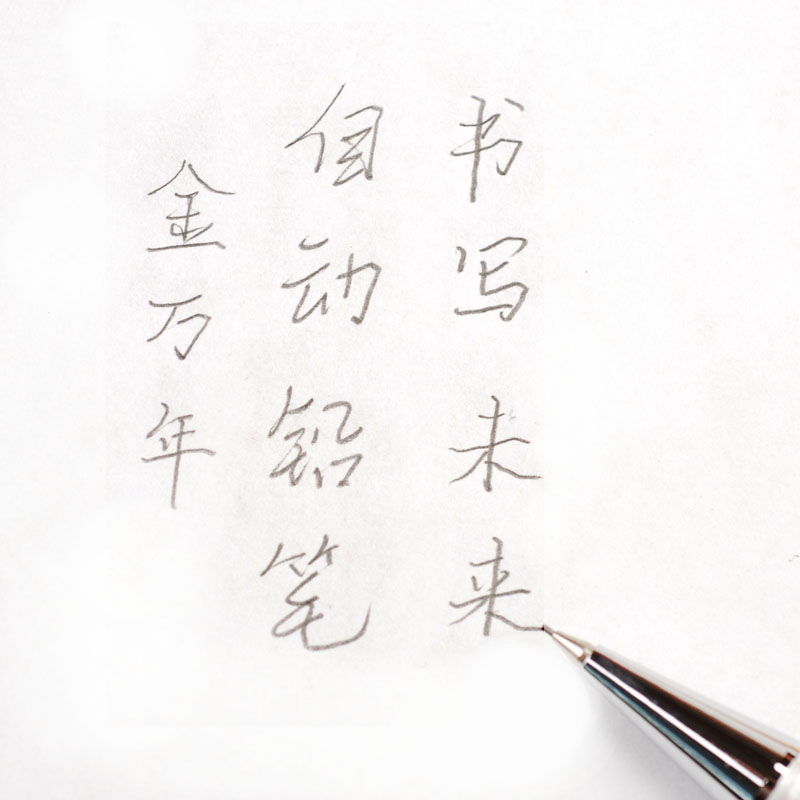 金万年
自动铅笔
书写未来